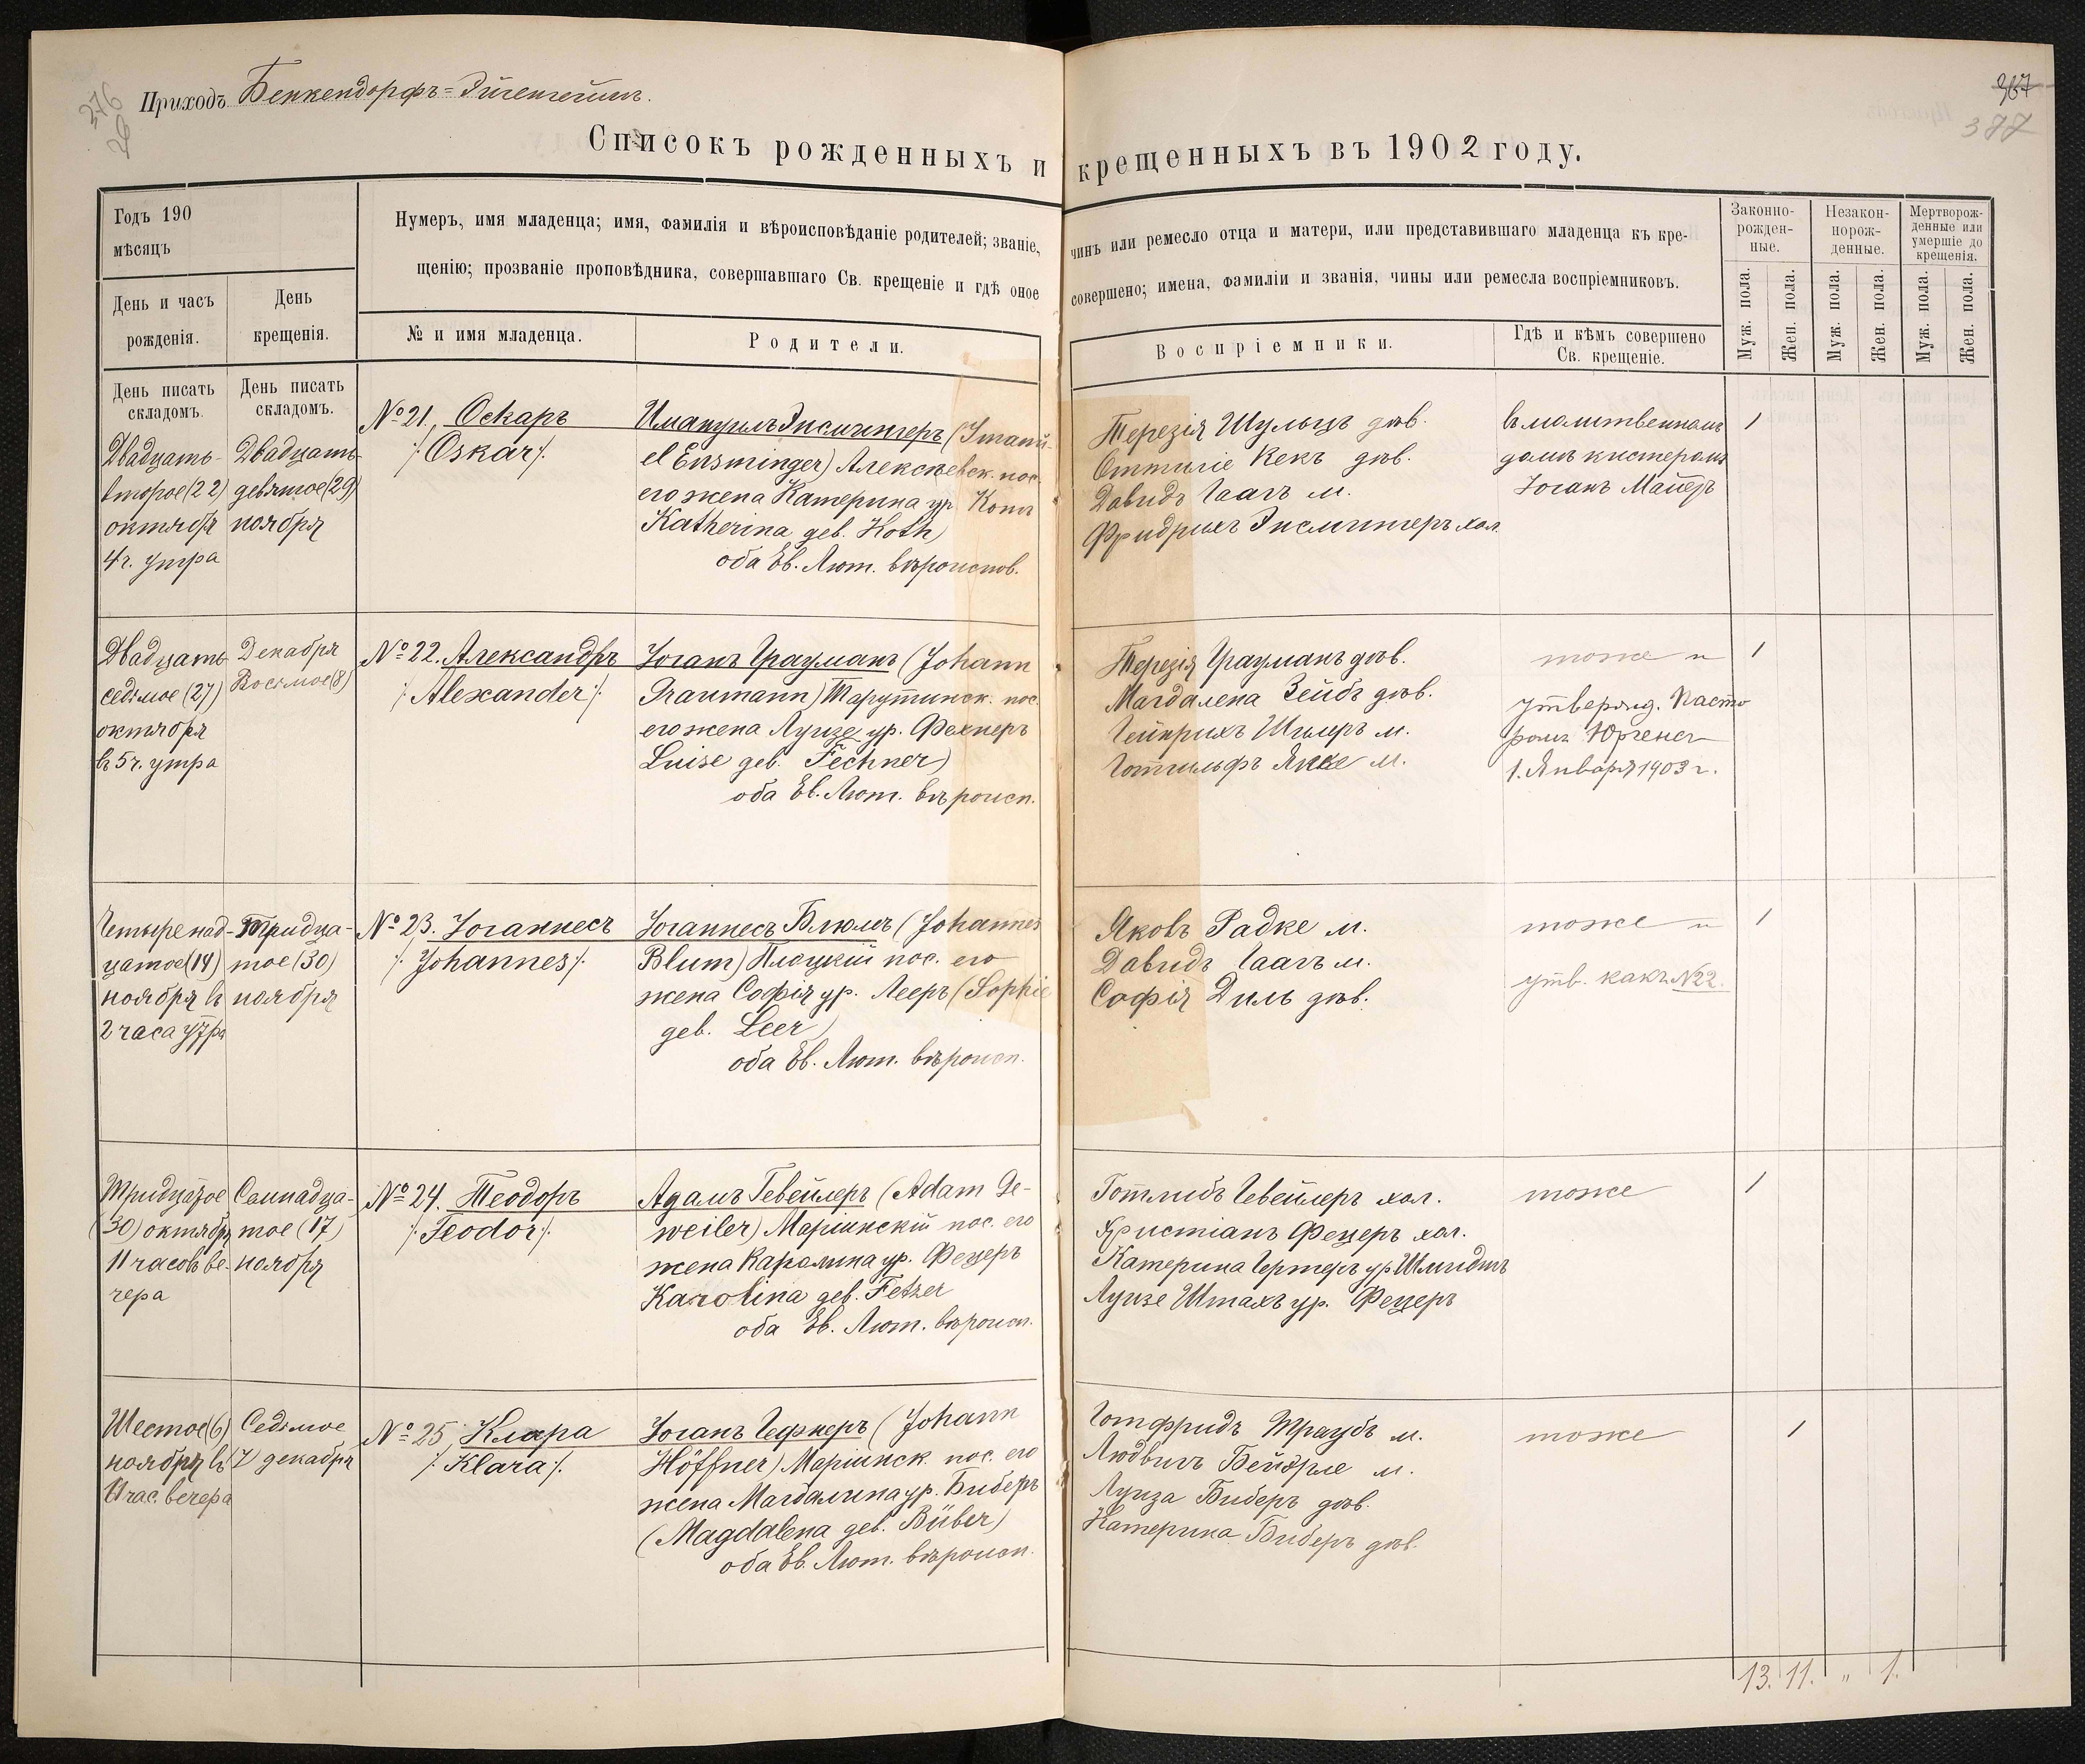 Приходъ Бенкендорфъ=Эйгенгеймъ.
276
367
377
Списокъ рожденныхъ и крещенныхъ въ 1902 году.
Годъ 190
мѣсяцъ
День и часъ
рожденія.
День
крещенія.
Нумеръ, имя младенца; имя, фамилія и вѣроисповѣданіе родителей; званіе, чинъ или ремесло отца и матери, или представившаго младенца къ кре-
щенію; прозваніе проповѣдника, совершавшаго Св. крещеніе и гдѣ оное совершено; имена, фамиліи и званія, чины или ремесла воспріемниковъ.
№ и имя младенца.
Родители.
Воспріемники.
Гдѣ и кѣмъ совершено
Св. крещеніе.
Законно-
рожден-
ные.
Незакон-
норож-
денные.
Мертворож-
денные или
умершіе до
крещенія.
Муж. пола.
Жен. пола.
Муж. пола.
Жен. пола.
Муж. пола.
Жен. пола.
День писать
складомъ.
День писать
складомъ.
Двадцать-
второе (22)
октября
4 ч. утра
Двадцать-
девятое (29)
ноября
№ 21. Оскаръ
/: Oskar :/
Имануилъ Энсмингеръ (Imanu-
el Ensminger) Алексѣевск. пос.
его жена Катерина ур. Котъ
Katherina geb. Koth)
оба Ев. Лют. вѣроиспов.
Терезія Шульцъ дѣв.
Оттиліе Кекъ дѣв.
Давидъ Гаагъ м.
Фридрихъ Энсмингеръ хол.
въ молитвенномъ
домѣ кистеромъ
Іоганъ Майеръ
1
Двадцать
седьмое (27)
октября
въ 5 ч. утра
Декабря
Восьмое (8)
№ 22. Александръ
/: Alexander :/
Іоганъ Грауманъ (Johann
Graumann) Тарутинск. пос.
его жена Луизе ур. Фехнеръ
Luise geb. Fechner)
оба Ев. Лют. вѣроисп.
Терезія Грауманъ дѣв.
Магдалена Зейбъ дѣв.
Гейнрихъ Шиллеръ м.
Готтильфъ Якке м.
тоже и
утвержд. Пасто
ромъ Юргенсъ
1. Января 1903 г.
1
Четыренад-
цатое (14)
ноября въ
2 часа утра
Тридца-
тое (30)
ноября
№ 23. Іоганнесъ
/: Johannes :/
Іоганнесъ Блюмъ (Johannes
Blum) Плоцкій пос. его
жена Софія ур. Лееръ (Sophie
geb. Leer)
оба Ев. Лют. вѣроисп.
Яковъ Радке м.
Давидъ Гаагъ м.
Софія Диль дѣв.
тоже и
утв. какъ №22.
1
Тридцатое
(30) октября
11 часовъ ве-
чера
Семнадца-
тое (17)
ноября
№ 24. Теодоръ
/: Teodor :/
Адамъ Гевейлеръ (Adam Ge-
weiler) Маріинскій пос. его
жена Каролина ур. Фецеръ
Karolina geb. Fetzer
оба Ев. Лют. вѣроисп.
Готлибъ Гевейлеръ хол.
Христіанъ Фецеръ хол.
Катерина Гертеръ ур Шмидтъ
Луизе Штахъ ур. Фецеръ
тоже
1
Шестое (6)
ноября въ
11 час. вечера
Седьмое
(7) декабря
№ 25. Клара
/: Klara :/
Іоганъ Гефнеръ (Johann
Höffner) Маріинск. пос. его
жена Магдалина ур. Биберъ
(Magdalena geb. Büber)
оба Ев. Лют. вѣроисп.
Готфридъ Траубъ м.
Людвигъ Бейерле м.
Луиза Биберъ дѣв.
Катерина Биберъ дѣв.
тоже
1
13. 11. " 1.